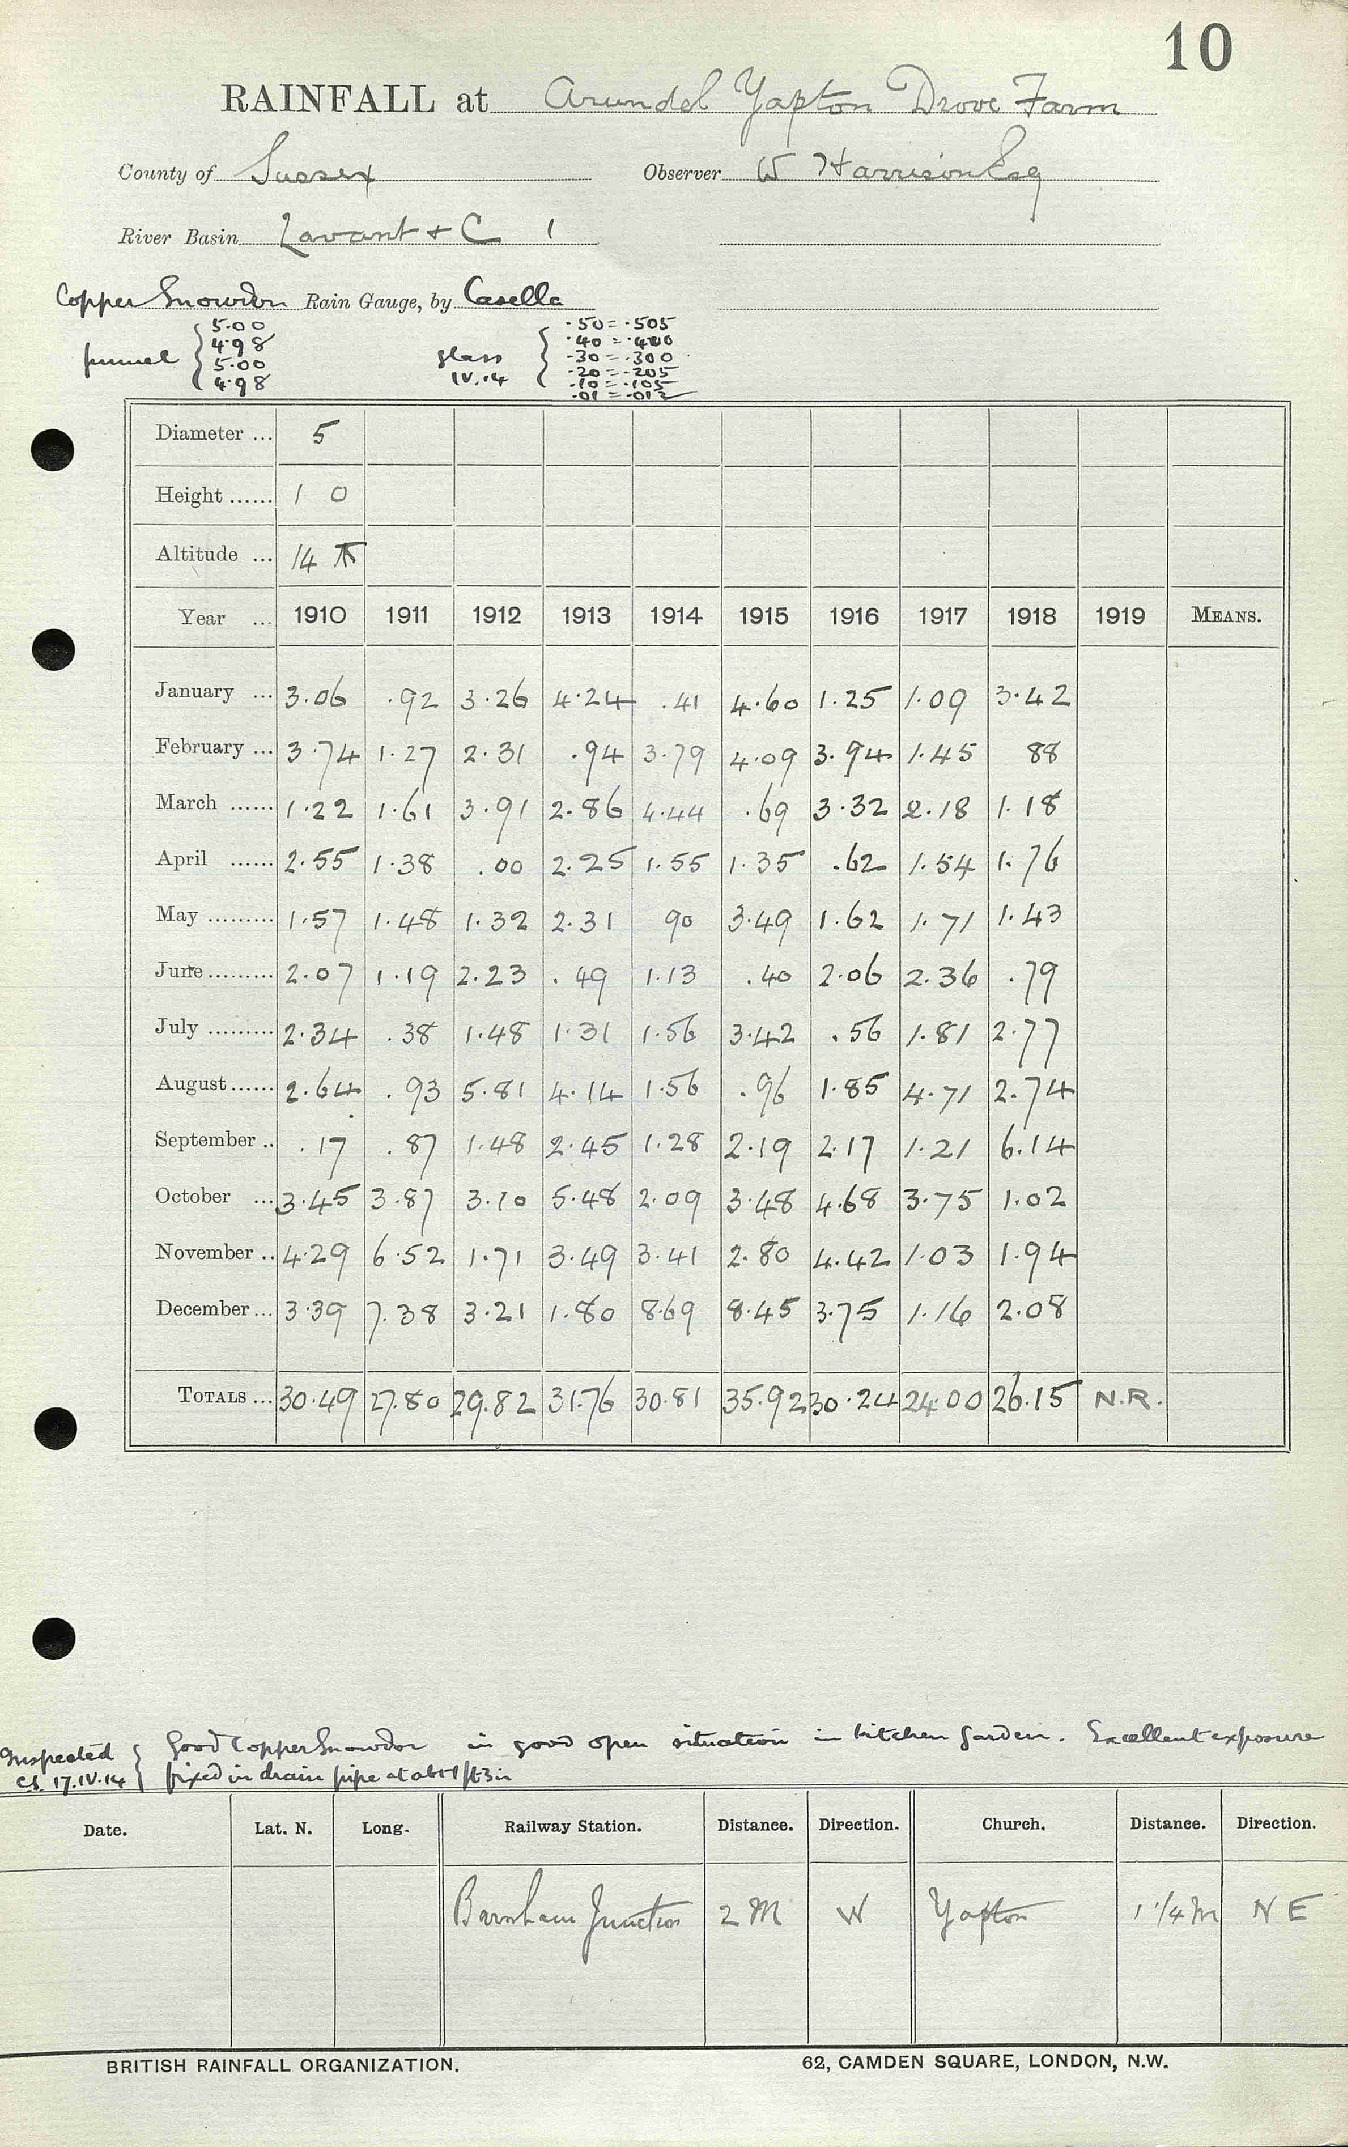 10
RAINFALL at Arundel Yapton Drove Farm
County of Sussex Observer W Harrison Esq
River Basin Lavant & C 1
Copper Snowdon Rain Gauge, by Casella
funnel { 5.00 4.98 5.00 4.98
glass IV.14 { .50 = .505 .40 = .400 .30 = .300 .20 = .205 .10 = .105 .01 = .012
Diameter ... 5
Height ...... 1 0
Altitude ... 14 ft
Year ... 1910 1911 1912 1913 1914 1915 1916 1917 1918 1919 MEANS.
January ... 3.06 .92 3.26 4.24 .41 4.60 1.25 1.09 3.42
February ... 3.74 1.27 2.31 .94 3.79 4.09 3.94 1.45 88
March ...... 1.22 1.61 3.91 2.86 4.44 .69 3.32 2.18 1.18
April ...... 2.55 1.38 .00 2.25 1.55 1.35 .62 1.54 1.76
May ......... 1.57 1.48 1.32 2.31 90 3.49 1.62 1.71 1.43
June ......... 2.07 1.19 2.23 .49 1.13 .40 2.06 2.36 .79
July ......... 2.34 .38 1.48 1.31 1.56 3.42 .56 1.81 2.77
August ...... 2.64 .93 5.81 4.14 1.56 .96 1.85 4.71 2.74
September .. .17 .87 1.48 2.45 1.28 2.19 2.17 1.21 6.14
October ... 3.45 3.87 3.10 5.48 2.09 3.48 4.68 3.75 1.02
November .. 4.29 6.52 1.71 3.49 3.41 2.80 4.42 1.03 1.94
December ... 3.39 7.38 3.21 1.80 8.69 8.45 3.75 1.16 2.08
TOTALS ... 30.49 27.80 29.82 31.76 30.81 35.92 30.24 24.00 26.15 N.R.
Inspected { Good Copper Snowdon in good open situation in kitchen garden. Excellent exposure
CS. 17.IV.14 { fixed in drain pipe at abt 1 ft 3 in
Date. Lat. N. Long. Railway Station. Distance. Direction. Church. Distance. Direction.
Barnham Junction 2 M W Yapton 1 1/4 M N E
BRITISH RAINFALL ORGANIZATION. 62, CAMDEN SQUARE, LONDON, N.W.